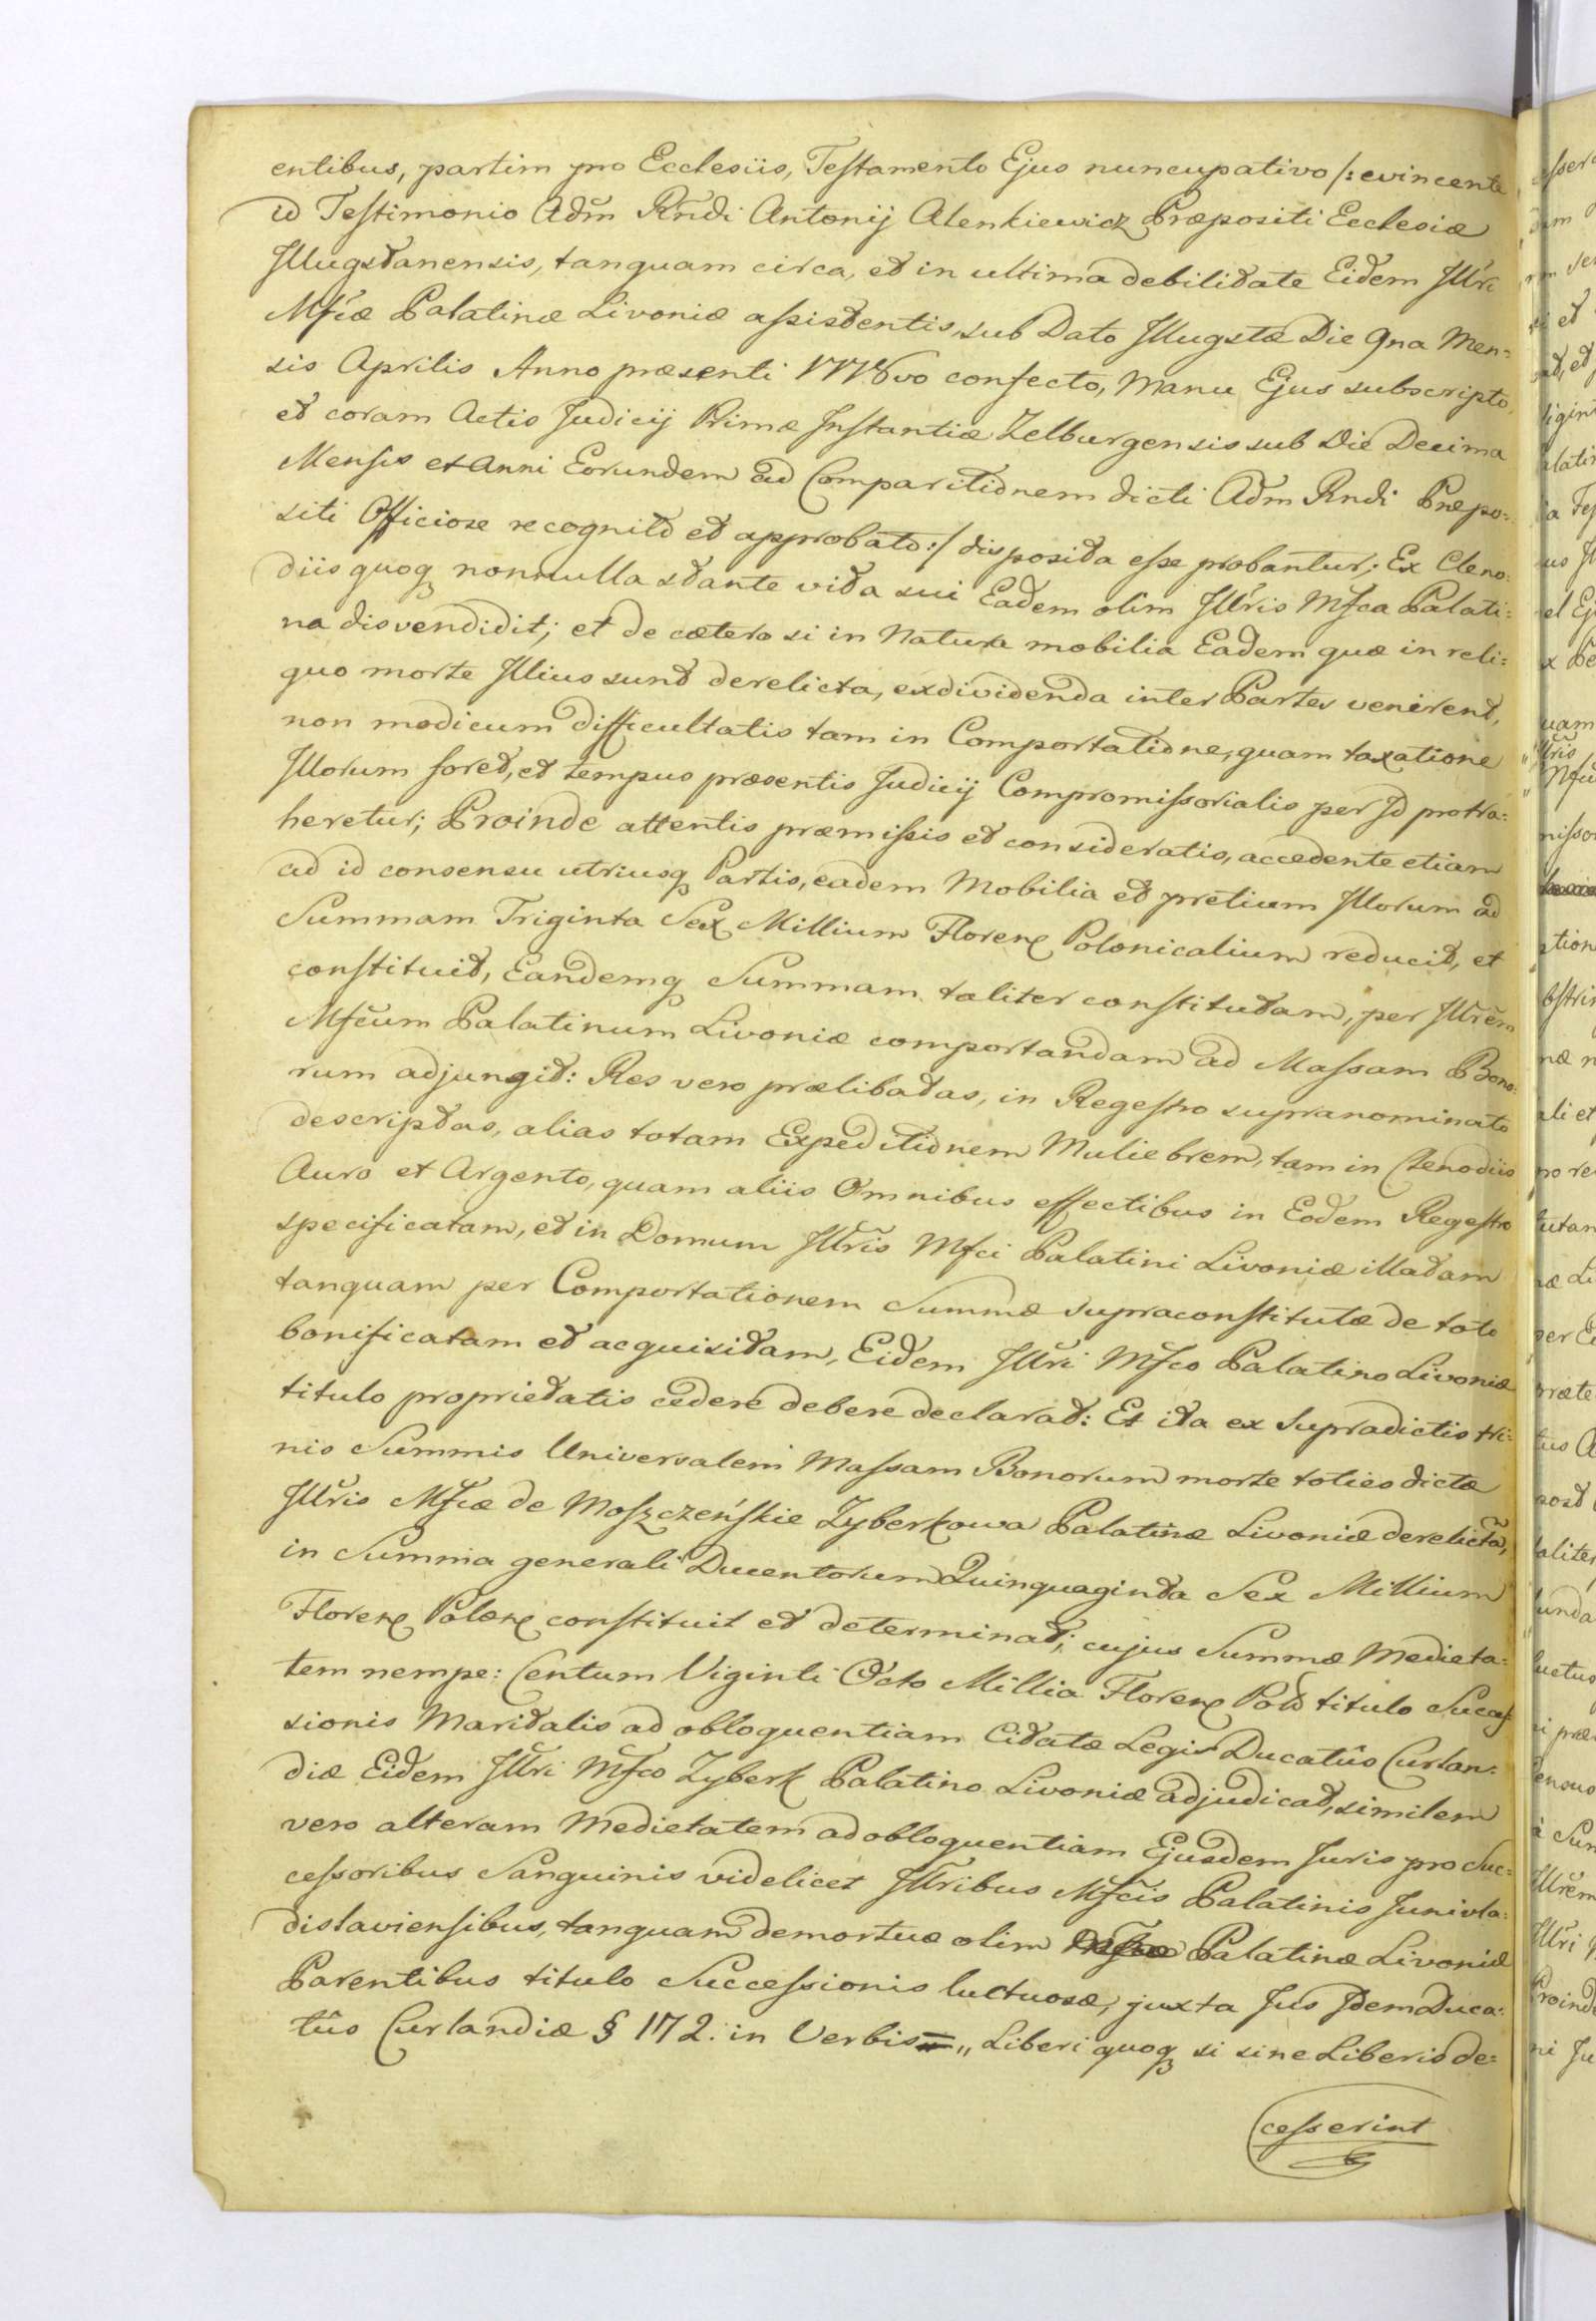 entibus, partim pro Ecclesiis, Testamento Ejus nuncupativo /: evincente
id Testimonio Adm̃ Rñdi Antonij Alenkiewicz Præpositi Ecclesiæ
Illugstanensis, tanquam circa, et in ultima debilitate Eidem Illri
Mfcæ Palatinæ Livoniæ assistentis, sub Dato Illugstæ Die 9na Men=
sis Aprilis Anno præsenti 1776vo confecto, Manu Ejus subscripto,
et coram Actis Judicij Primæ Instantiæ Zelburgensis sub Die Decima
Mensis et Anni Eorundem ad Comparitionem dicti Adm Rndi Præpo=
siti Officiose recognito et approbato :/ disposita esse probantur; Ex Cleno=
diis quoq nonnulla stante vita sui Eadem olim Illris Mfca Palati=
na disvendidit; et de cætero si in Natura mobilia Eadem quæ in reli=
quo morte Illius sunt derelicta, exdividenda inter Partes venirent,
non modicum difficultatis tam in Comportatione, quam taxatione
Illorum foret, et tempus præsentis Judicij Compromissorialis per Id protra=
heretur; Proinde attentis præmissis et consideratis, accedente etiam
ad id consensu utriusq Partis, eadem Mobilia et pretium Illorum ad
Summam Triginta Sex Millium Floren Polonicalium reducit, et
constituit, Eandemq Summam taliter constitutam, per Illrem
Mfcum Palatinum Livoniæ comportandam ad Massam Bono=
rum adjungit: Res vero prælibatas, in Regestro supranominato
descriptas, alias totam Expeditionem Muliebrem, tam in Clenodiis
Auro et Argento, quam aliis Omnibus effectibus in Eodem Regestro
specificatam, et in Domum Illris Mfci Palatini Livoniæ illatam
tanquam per Comportationem Summæ supraconstitutæ de toto
bonificatam et acquisitam, Eidem Illri Mfco Palatino Livoniæ
titulo proprietatis cedere debere declarat: Et ita ex Supradictis tri=
nis Summis Universalem Massam Bonorum morte toties dictæ
Illris Mfcæ de Moszczeńskie Zyberkowa Palatinæ Livoniæ derelictã,
in Summa generali Ducentorum Quinquaginta Sex Millium
Floren Polon constituit et determinat; cujus Summæ Medieta=
tem nempe: Centum Viginti Octo Millia Floren Pold titulo Succes
sionis Maritalis ad obloquentiam Citatæ Legis Ducatûs Curlan=
diæ Eidem Illri Mfco Zyberk Palatino Livoniæ adjudicat, similem
vero alteram Medietatem ad obloquentiam Ejusdem Juris pro Suc=
cessoribus Sanguinis videlicet Illribus Mfcis Palatinis Junivla=
dislaviensibus, tanquam demortuæ olim Palatinæ Livoniæ
Parentibus titulo Successionis luctuosæ, juxta Jus Idem Duca=
tûs Curlandiæ § 172. in Verbis = „ Liberi quoq si sine Liberis de=
cesserint